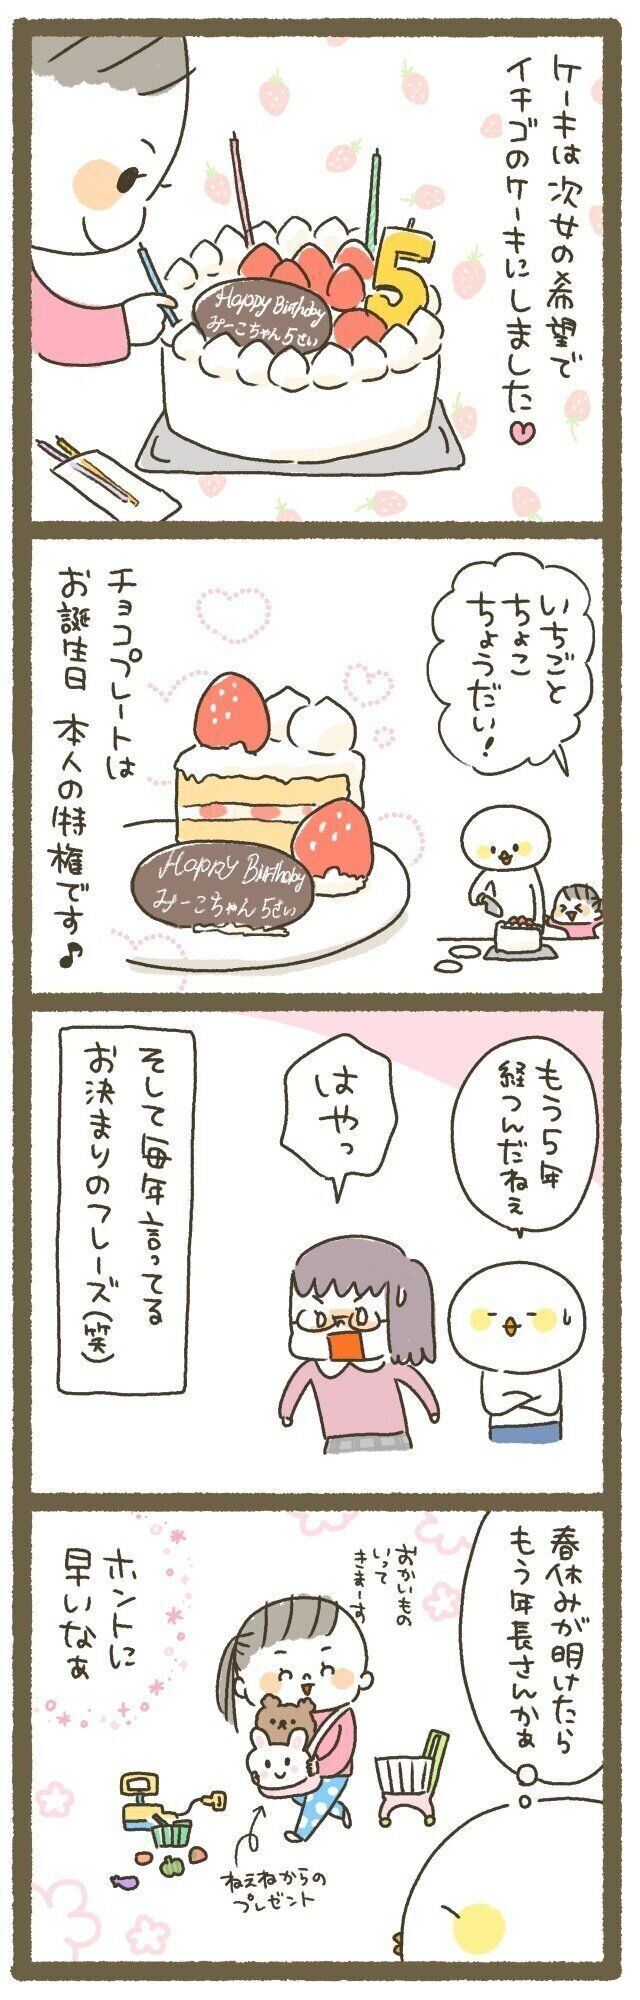 ケーキは次女の希望で
イチゴのケーキにしました♥
Happy Birthday
みーこちゃん5さい
5
いちごと
ちょこ
ちょうだい!
チョコプレートは
お誕生日 本人の特権です♪
Happy Birthday
みーこちゃん5さい
もう5年
経つんだねぇ
はやっ
そして毎年言ってる
お決まりのフレーズ(笑)
春休みが明けたら
もう年長さんかぁ
おかいもの
いって
きまーす
ホントに
早いなぁ
ねえねからの
プレゼント